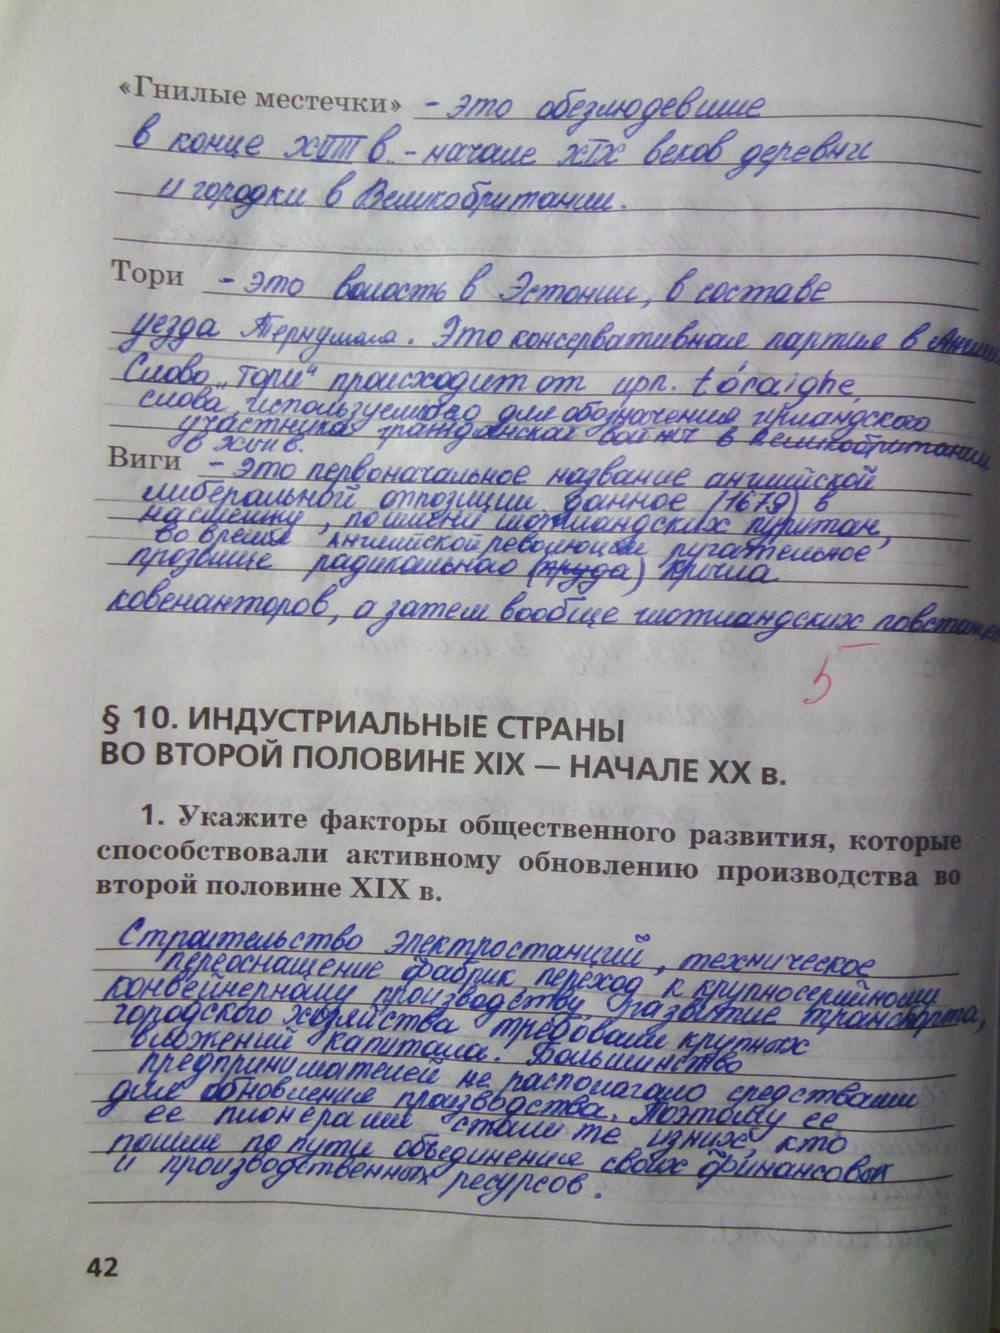 «Гнилые местечки» - это обезлюдевшие
в конце XVIII в. - начале XIX веков деревни
и городки в Великобритании.
Тори - это волость в Эстонии, в составе
уезда . Это консервативная партия в
Слово „тори“ происходит от ирл. tóraighe,
слова, используемого для обозначения ирландского
участника гражданской войны в Великобритании
в XVII в.
Виги - это первоначальное название английской
либеральной оппозиции данное (1679) в
насмешку, по имени шотландских пуритан,
во время английской революции ругательное
прозвище радикального (труда) крыла
ковенанторов, а затем вообще шотландских
5
§ 10. ИНДУСТРИАЛЬНЫЕ СТРАНЫ
ВО ВТОРОЙ ПОЛОВИНЕ XIX — НАЧАЛЕ XX в.
1. Укажите факторы общественного развития, которые
способствовали активному обновлению производства во
второй половине XIX в.
Строительство электростанций, техническое
переоснащение фабрик, переход к крупносерийному
конвейнерному производству, развитие транспорта,
городского хозяйства требовали крупных
вложений капитала. Большинство
предпринимателей не располагало средствами
для обновления производства. Поэтому ее
ее пионерами стали те из них, кто
пошли по пути объединения своих финансовых
и производственных ресурсов.
42